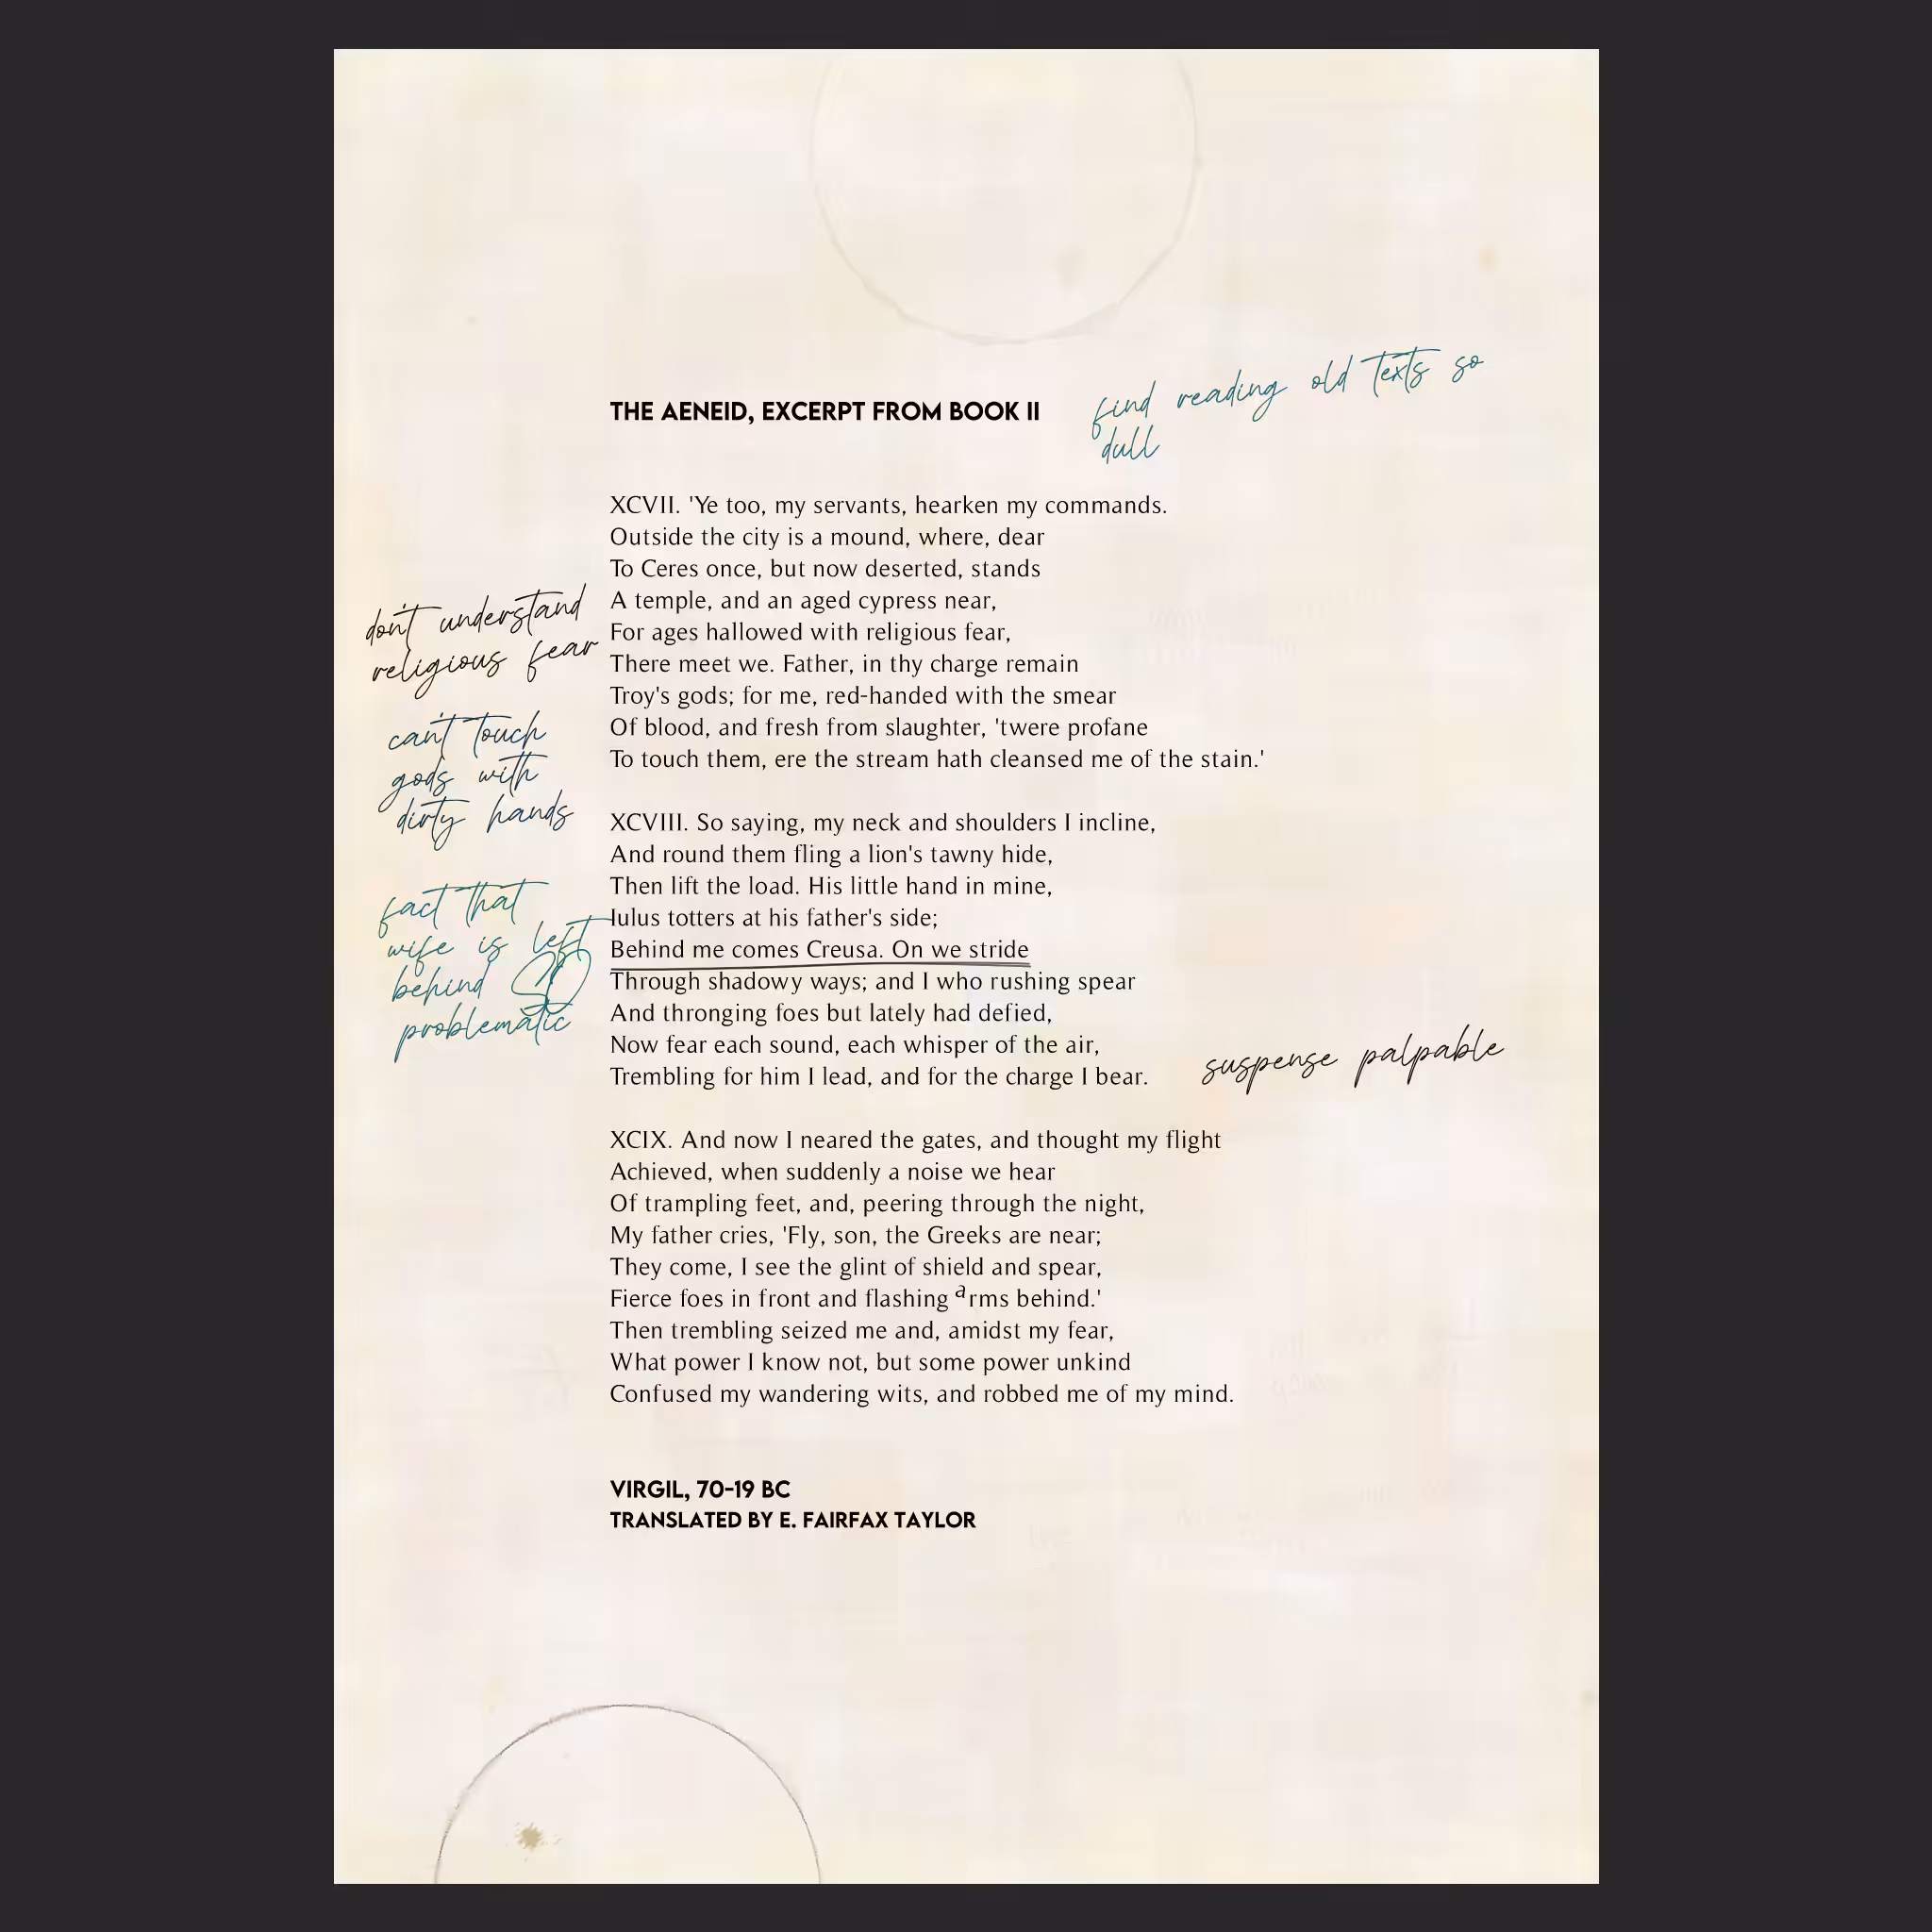 THE AENEID, EXCERPT FROM BOOK II
find reading old texts so
dull
XCVII. 'Ye too, my servants, hearken my commands.
Outside the city is a mound, where, dear
To Ceres once, but now deserted, stands
A temple, and an aged cypress near,
For ages hallowed with religious fear,
There meet we. Father, in thy charge remain
Troy's gods; for me, red-handed with the smear
Of blood, and fresh from slaughter, 'twere profane
To touch them, ere the stream hath cleansed me of the stain.'
don't understand
religious fear
can't touch
gods with
dirty hands
XCVIII. So saying, my neck and shoulders I incline,
And round them fling a lion's tawny hide,
Then lift the load. His little hand in mine,
Iulus totters at his father's side;
Behind me comes Creusa. On we stride
Through shadowy ways; and I who rushing spear
And thronging foes but lately had defied,
Now fear each sound, each whisper of the air,
Trembling for him I lead, and for the charge I bear.
fact that
wife is left
behind SO
problematic
suspense palpable
XCIX. And now I neared the gates, and thought my flight
Achieved, when suddenly a noise we hear
Of trampling feet, and, peering through the night,
My father cries, 'Fly, son, the Greeks are near;
They come, I see the glint of shield and spear,
Fierce foes in front and flashing arms behind.'
Then trembling seized me and, amidst my fear,
What power I know not, but some power unkind
Confused my wandering wits, and robbed me of my mind.
VIRGIL, 70-19 BC
TRANSLATED BY E. FAIRFAX TAYLOR